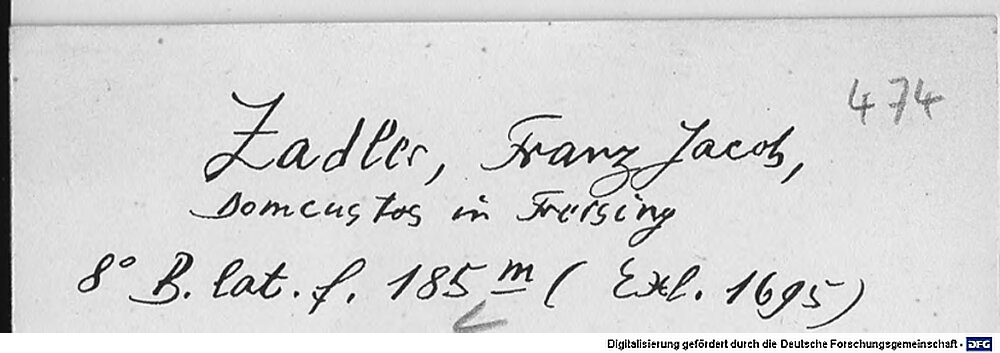 474
Zadler, Franz Jacob,
Domcustos in Freising
8° B. lat. f. 185 m ( Exl. 1695)
Digitalisierung gefördert durch die Deutsche Forschungsgemeinschaft - DFG